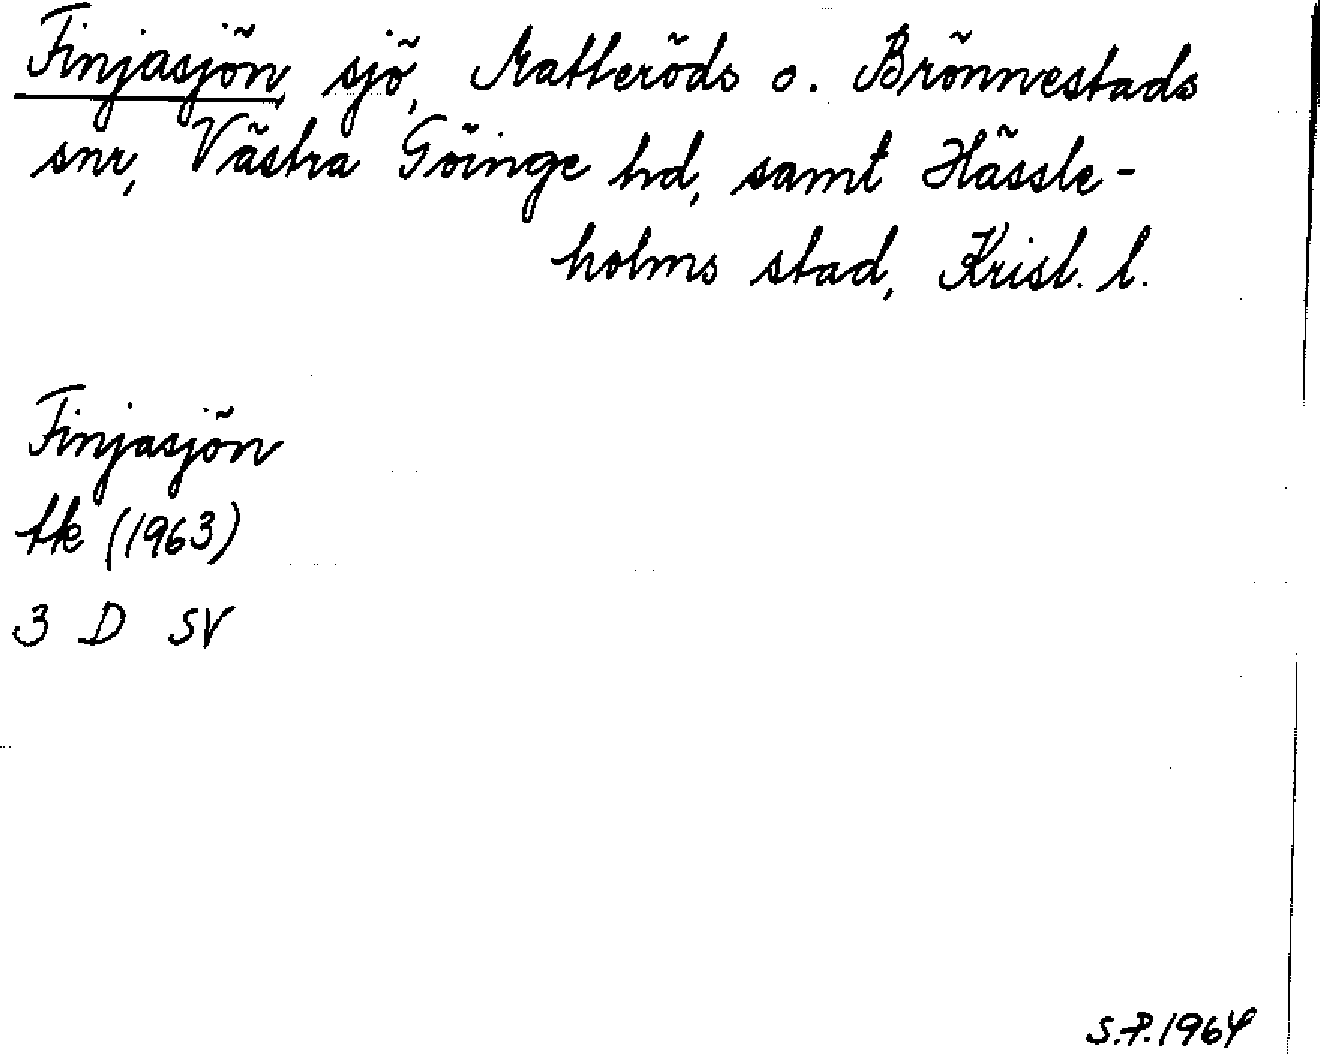 Finjasjön sjö, Matteröds o. Brönnestads
snr, Västra Göinge hd, samt Hässle-
holms stad, Krist. l.
Finjasjön
tk (1963)
3 D SV
S.P. 1964